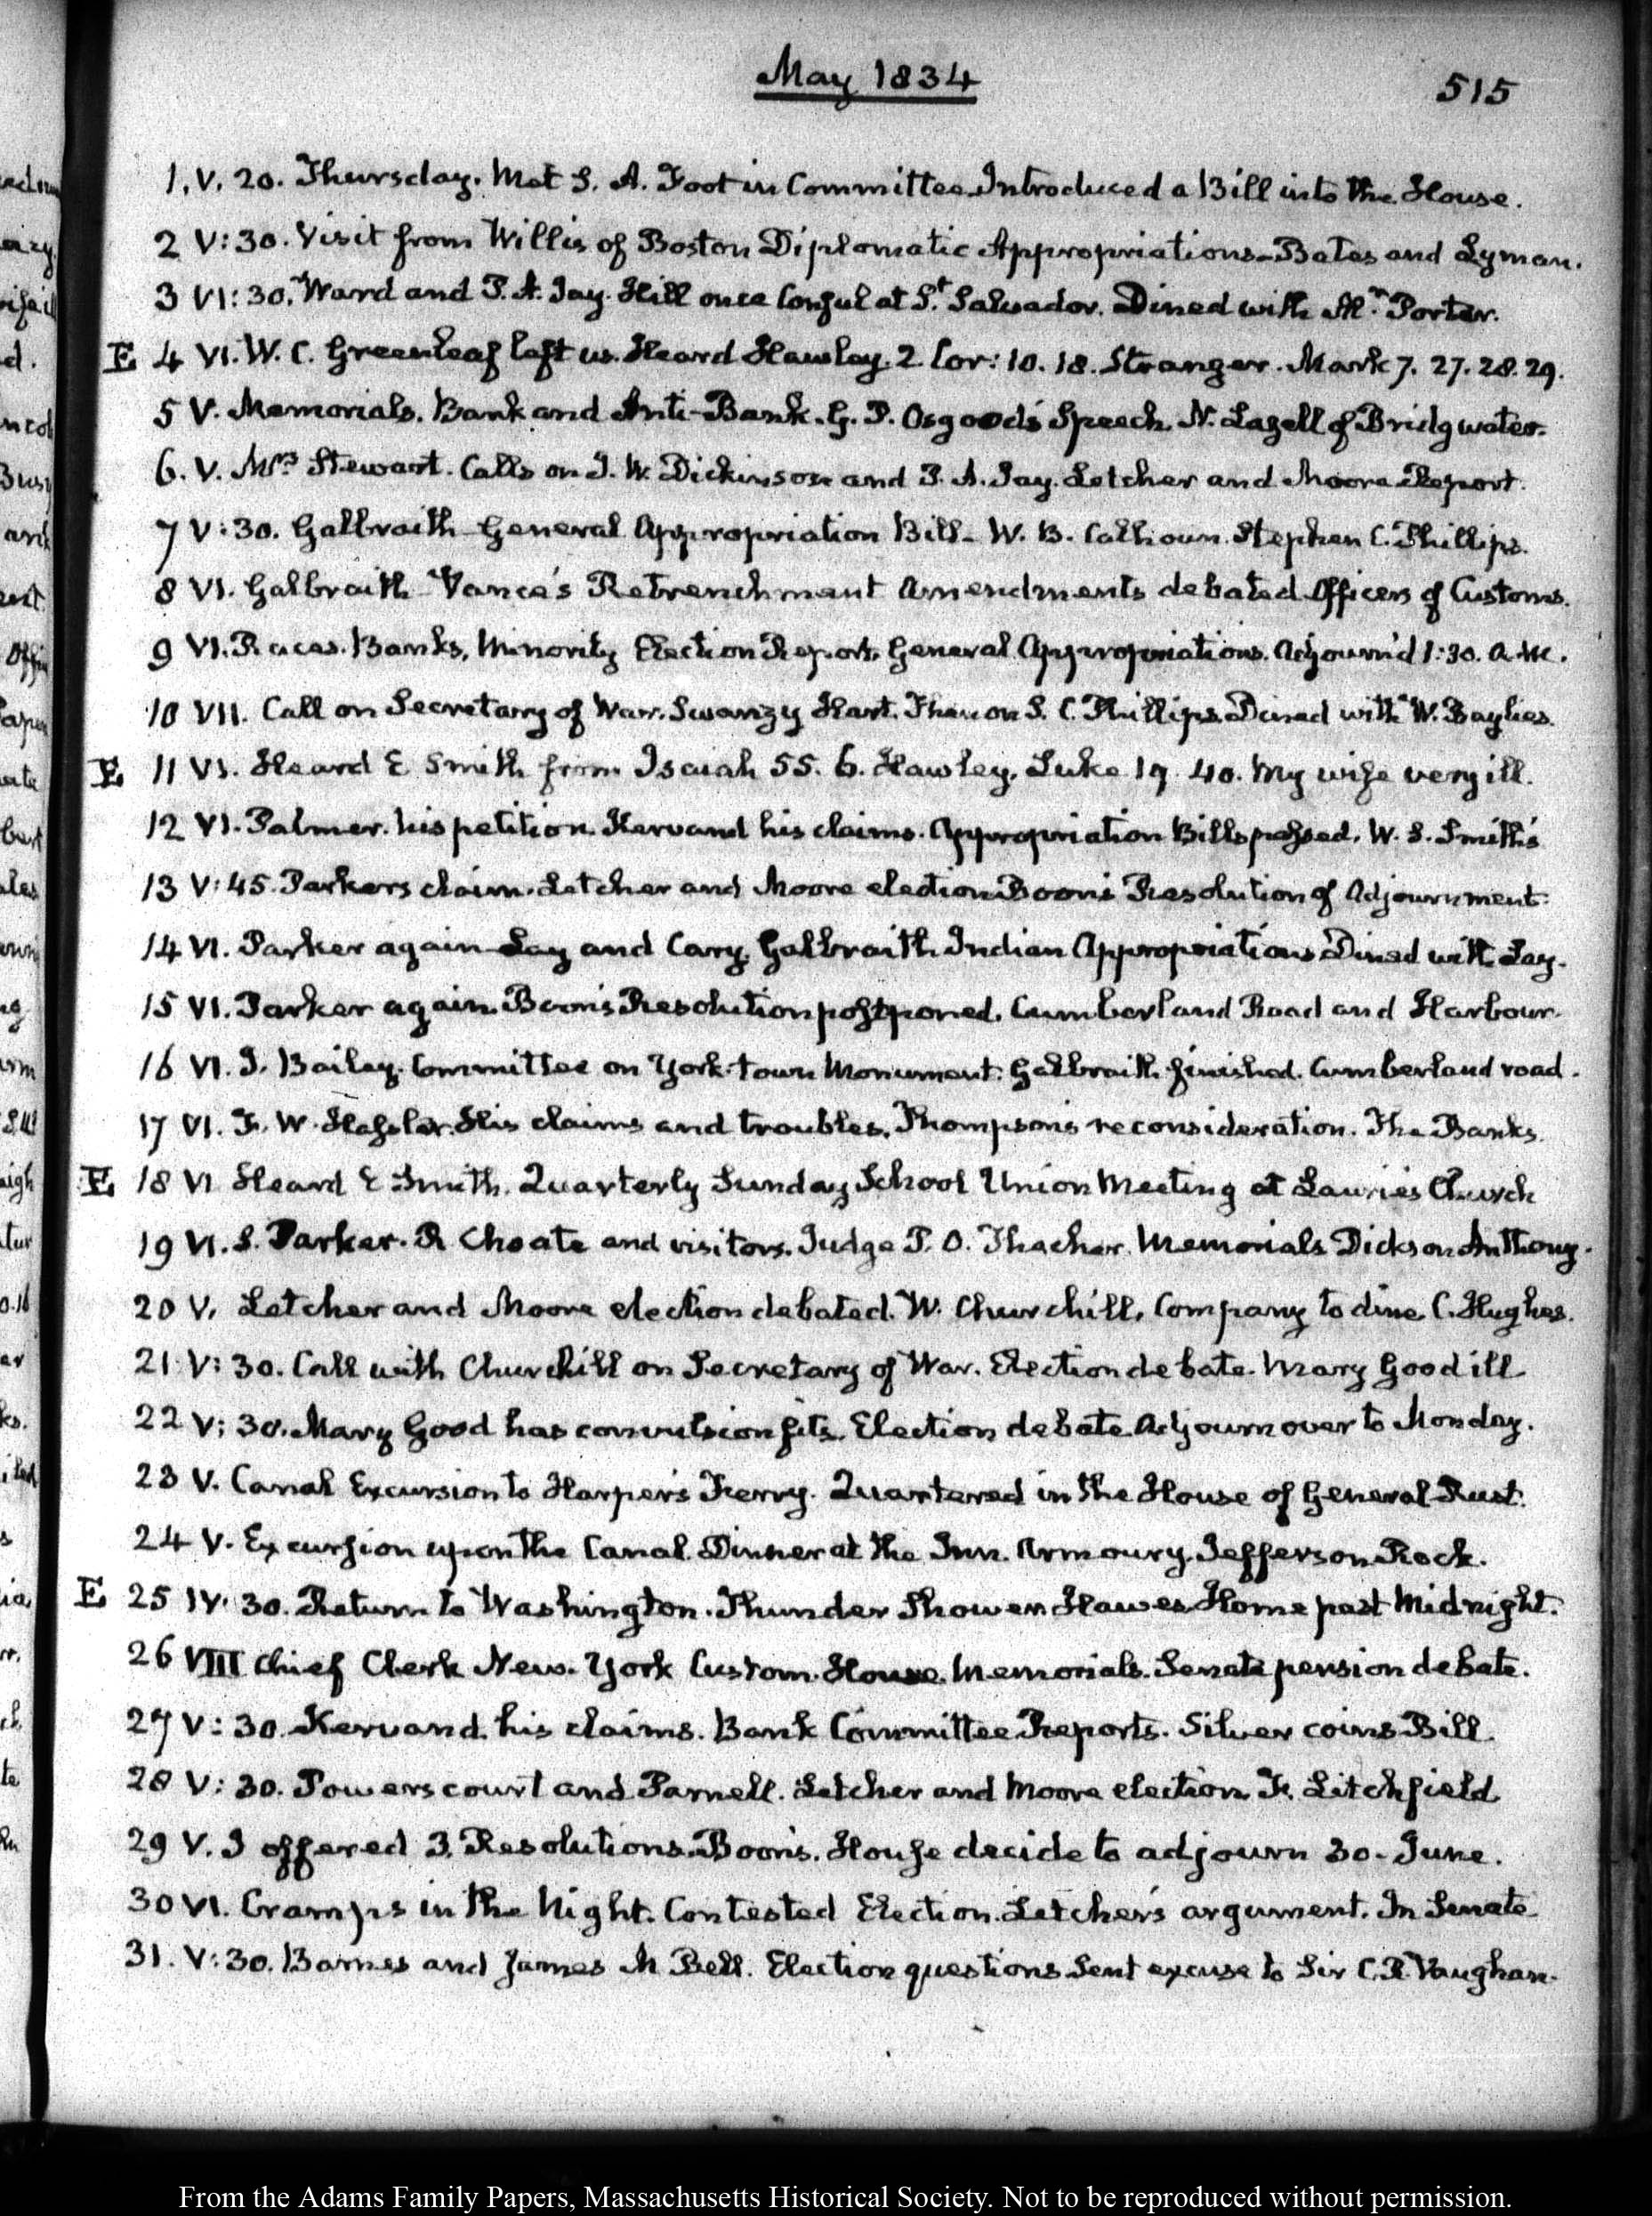 May 1834
515
1. V. 20. Thursday. Met S. A. Foot in Committee Introduced a Bill into the House.
2 V:30. Visit from Willis of Boston Diplomatic Appropriations—Bates and Lyman.
3 VI:30. Ward and P. A. Jay. Hill once Consul at St. Salvador. Dined with Mr. Porter.
E 4 VI. W. C. Greenleaf left us. Heard Hawley. 2 Cor: 10. 18. Stranger. Mark 7. 27. 28. 29.
5 V. Memorials. Bank and Anti-Bank. G. P. Osgood's Speech. N. Lazell of Bridgwater.
6. V. Mrs Stewart. Calls on J. W. Dickinson and P. A. Jay. Letcher and Moore Report.
7 V:30. Galbraith—General Appropriation Bill—W. B. Calhoun. Stephen C. Phillips.
8 VI. Galbraith—Vance's Retrenchment Amendments debated Officers of Customs.
9 VI. Races. Banks, Minority Election Report. General Appropriations. Adjourn'd 1:30. A.M.
10 VII. Call on Secretary of War. Swanzy Hart. Then on S. C. Phillips. Dined with W. Baylies.
E 11 VI. Heard E Smith from Isaiah 55. 6. Hawley. Luke 19. 40. My wife very ill.
12 VI. Palmer. his petition. Kervand his claims. Appropriation Bills passed. W. S. Smith's
13 V:45. Parkers claim. Letcher and Moore election Boon's Resolution of Adjournment.
14 VI. Parker again—Lay and Cary. Galbraith. Indian Appropriations Dined with Lay.
15 VI. Parker again. Boon's Resolution postponed. Cumberland Road and Harbour.
16 VI. J. Bailey. Committee on York-town Monument. Galbraith finished. Cumberland road.
17 VI. F. W. Hassler. His claims and troubles. Thompson's reconsideration. The Banks.
E 18 VI Heard E Smith. Quarterly Sunday School Union Meeting at Laurie's Church
19 VI. S. Parker. R Choate and visitors. Judge P. O. Thacher. Memorials Dickson Anthony.
20 V. Letcher and Moore election debated. W. Churchill. Company to dine C. Hughes.
21 V:30. Call with Churchill on Secretary of War. Election debate. Mary Good ill
22 V:30. Mary Good has convulsion fits. Election debate Adjourn over to Monday.
23 V. Canal Excursion to Harper's Ferry. Quartered in the House of General Rust.
24 V. Excursion upon the Canal. Dinner at the Inn. Armoury. Jefferson Rock.
E 25 IV:30. Return to Washington. Thunder Shower Hawes Home past Midnight.
26 VIII Chief Clerk New-York Custom-House. Memorials. Senate pension debate.
27 V:30. Kervand. his claims. Bank Committee Reports. Silver coins Bill.
28 V:30. Powerscourt and Parnell. Letcher and Moore election. F. Litchfield
29 V. I offered 3. Resolutions. Boon's. House decide to adjourn 30. June.
30 VI. Cramps in the Night. Contested Election. Letcher's argument. In Senate
31. V:30. Barnes and James M. Bell. Election questions Sent excuse to Sir C. R. Vaughan.
From the Adams Family Papers, Massachusetts Historical Society. Not to be reproduced without permission.